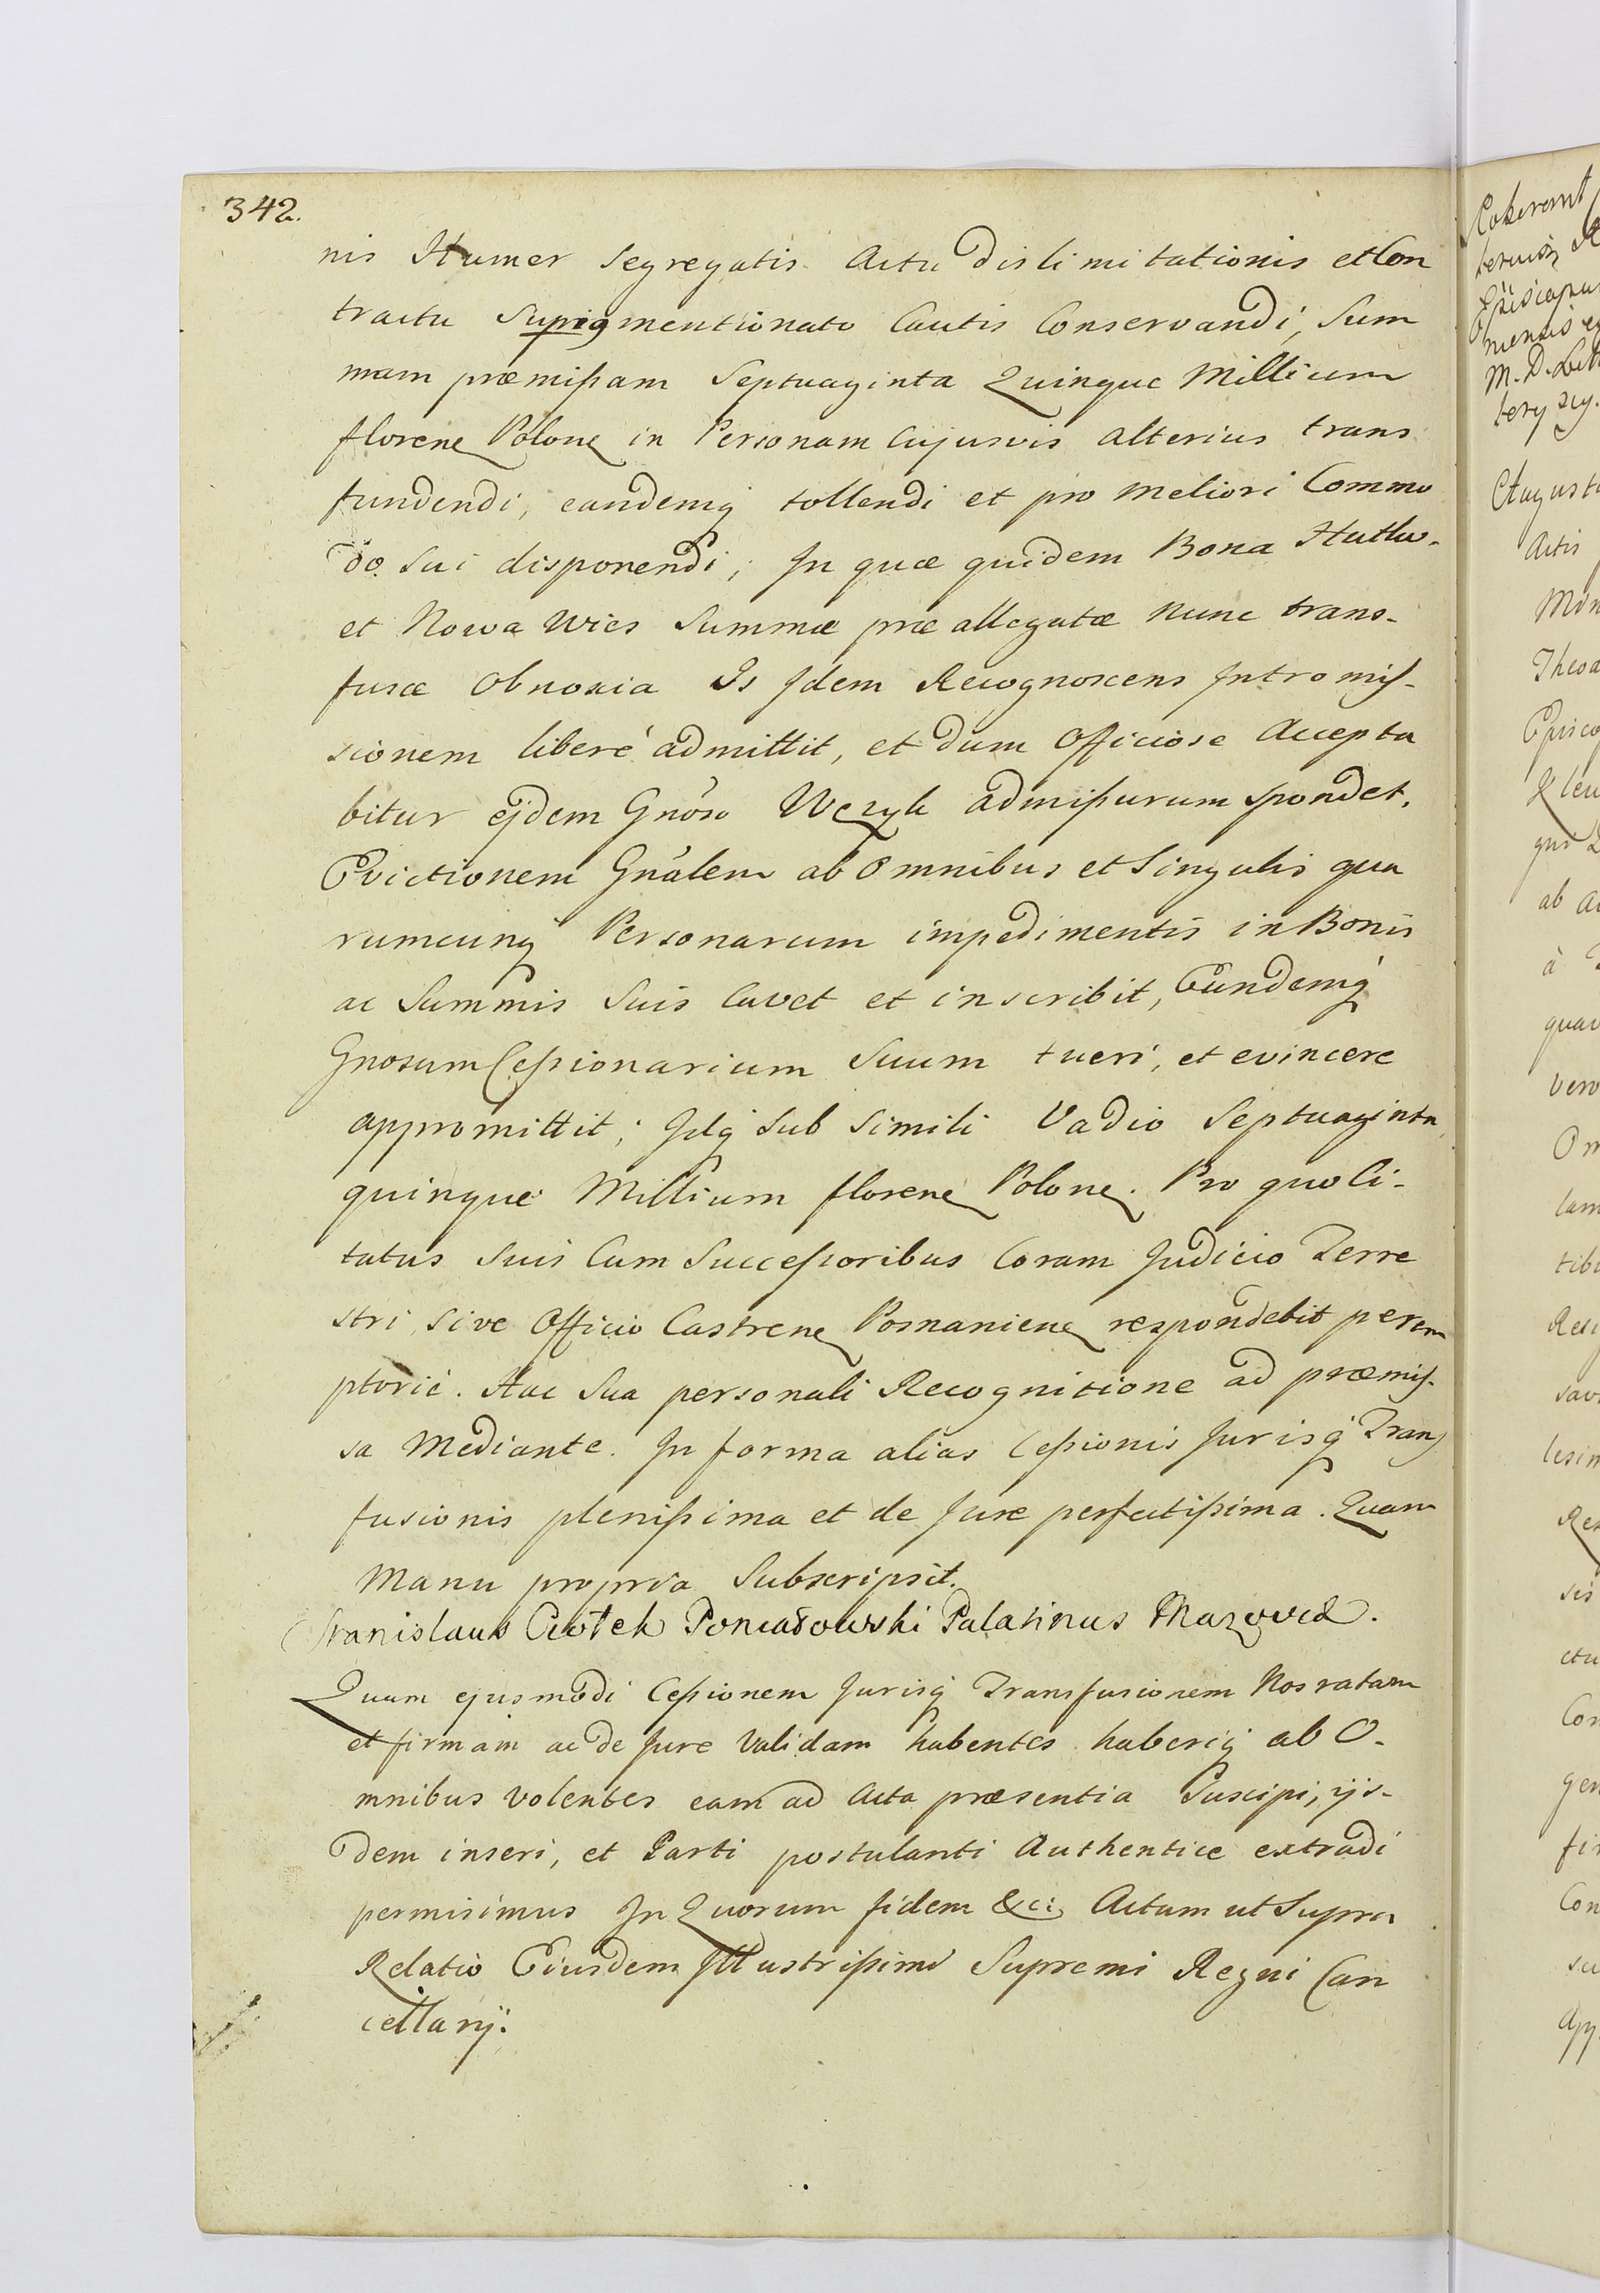 342.
nis Humer Segregatis Actu dislimitationis et Con
tractu Suprimentionato Cautis Conservandi, Sum
mam præmissam Septuaginta Quinque Millium
florenę Polonę in Personam Cujusvis alterius trans
fundendi, eandemq tollendi et pro meliori Commo
do Sui disponendi; In quæ quidem Bona Hutka-
et Nowa Wies Summæ præ allegatæ nunc trans-
fusæ obnoxia Is Idem Recognoscens Intromis-
sionem liberé admittit, et dum Officiose Accepta
bitur ejdem Gnoso Węzyk admissurum spondet.
Evictionem Gnalem ab Omnibus et Singulis qua
rumcunq Personarum impedimentis in Bonis
ac Summis Suis Cavet et inscribit, Eundemq
Gnosum Cessionarium Suum tueri, et evincere
appromittit; Idq Sub Simili Vadio Septuaginta
quinque Millium florenę Polonę. Pro quo Ci-
tatus Suis Cum Successoribus Coram Judicio Terre
stri Sive Officio Castrenę Posnanienę respondebit perem
ptorié. Hac Sua personali Recognitione ad præmis-
sa Mediante. In forma alias Cessionis Jurisq Trans
fusionis plenissima et de Jure perfectissima. Quam
Manu propria Subscripsit.
Stanislaus Ciołek Poniatowski Palatinus Mazovię.
Quam ejusmodi Cessionem Jurisq Transfusionem Nos ratam
et firmam ac de Jure Validam habentes haberiq ab O-
mnibus Volentes eam ad Acta præsentia Suscipi, ijs-
dem inseri, et Parti postulanti Authentice extradi
permisimus In Quorum fidem &c: Actum ut Supra
Relatio Eiusdem Illustrissimi Supremi Regni Can
cellarij.
Episcopu
M. D.
August
Actis
Theod
Episco
ab
à
quar
vero
lam
tibu